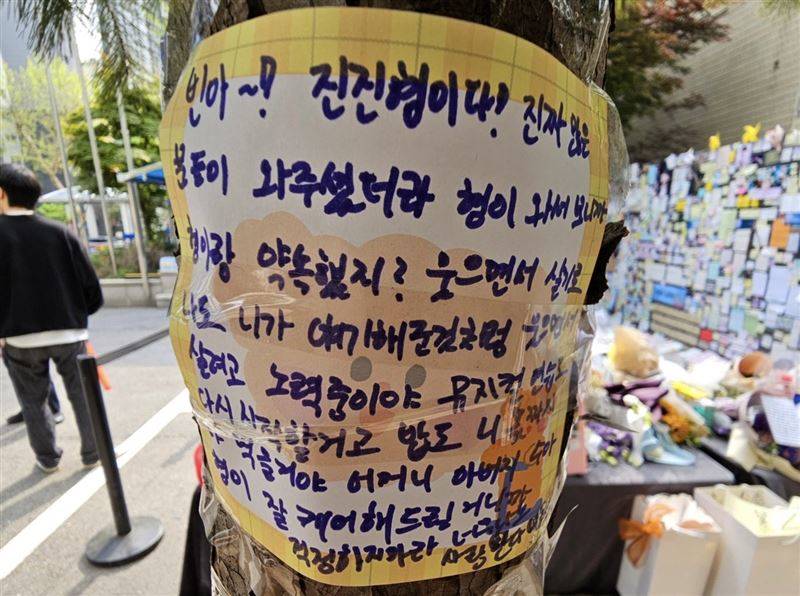 빈아~! 진진형이다! 진짜 많은
분들이 와주셨더라 형이 와서 보니까
형이랑 약속했지? 웃으면서 살기로
나도 니가 얘기해준것처럼 웃으면서
살려고 노력중이야 뮤지컬 연습도
다시 시작할거고 밥도 니 몫까지
먹을거야 어머니 아버지
형이 잘 케어해드릴거니깐
걱정하지마라 사랑한다